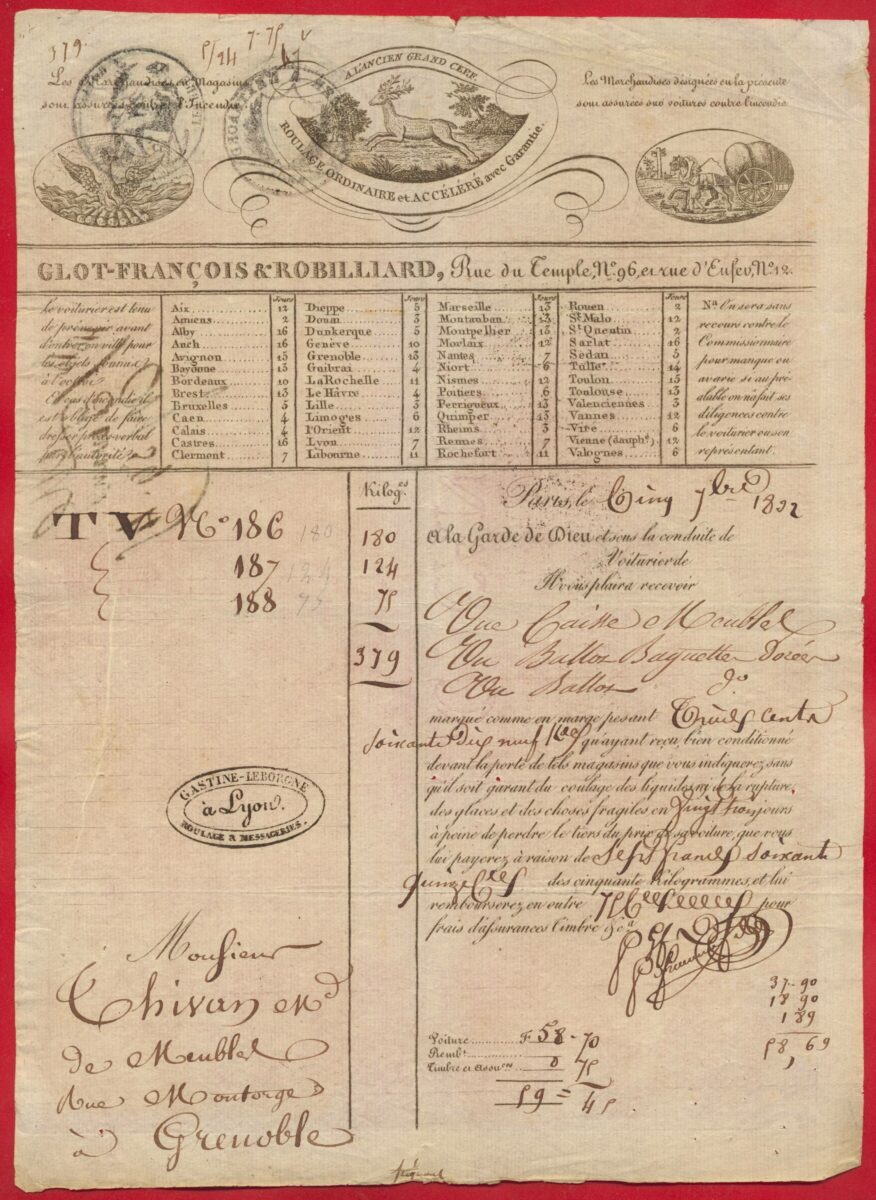 379.
5/24 7-75
Les Marchandises en Magasins
sont assurées contre l'Incendie
A L'ANCIEN GRAND CERF.
ROULAGE ORDINAIRE et ACCÉLÉRÉ avec Garantie.
Les Marchandises désignées en la présente
sont assurées sur voitures contre l'incendie
GLOT-FRANÇOIS & ROBILLIARD, Rue du Temple, N.º 96, et rue d'Enfer, N.º 12.
Le voiturier est tenu
de prévenir avant
d'entrer en ville pour
les objets soumis
à l'octroi.
En cas d'incendie il
est obligé de faire
dresser procès verbal
par l'autorité.
Jours
Aix 12
Amiens 2
Alby 16
Auch 16
Avignon 15
Bayonne 13
Bordeaux 10
Brest 13
Bruxelles 5
Caen 4
Calais 4
Castres 16
Clermont 7
Jours
Dieppe 5
Douai 3
Dunkerque 5
Genève 10
Grenoble 13
Guibrai 4
La Rochelle 11
Le Hâvre 4
Lille 3
Limoges 6
l'Orient 12
Lyon 7
Libourne 11
Jours
Marseille 13
Montauban 13
Montpellier 13
Morlaix 12
Nantes 7
Niort 6
Nismes 12
Poitiers 6
Perrigueux 13
Quimper 13
Rheims 3
Rennes 7
Rochefort 11
Jours
Rouen 2
St. Malo 12
St. Quentin 2
Sarlat 16
Sedan 5
Tulle 14
Toulon 15
Toulouse 13
Valenciennes 3
Vannes 12
Vire 6
Vienne (dauph.) 12
Valognes 6
Nª On sera sans
recours contre le
Commissionnaire
pour manque ou
avarie si au pré-
alable on n'a fait ses
diligences contre
le voiturier ou son
représentant.
Kilog.es
TV Nº 186 180
187 124
188 75
180
124
75
379
Paris, le Cinq 7bre 1822
A la Garde de Dieu et sous la conduite de
Voiturier de
Il vous plaira recevoir
Une Caisse Meubles
Un Ballot Baguettes Dorées
Un Ballot dº
marqué comme en marge pesant Trois cents
soixante dix neuf Kes qu'ayant reçu, bien conditionné
devant la porte de tels magasins que vous indiquerez sans
qu'il soit garant du coulage des liquides, ni de la rupture,
des glaces et des choses fragiles en Vingt trois jours
à peine de perdre le tiers du prix de sa voiture, que vous
lui payerez à raison de Sept francs soixante
quinze Ces des cinquante Kilogrammes, et lui
rembourserez en outre 75 Ces pour
frais d'assurances Timbre &cª
GASTINE-LEBORGNE
à Lyon.
ROULAGE & MESSAGERIES.
Monsieur
Thivan Md
de Meubles
Rue Montorge
à Grenoble
37-90
18 90
1 89
58,69
Voiture F 58-70
Rembt
Timbre et assurces 0 75
59=45